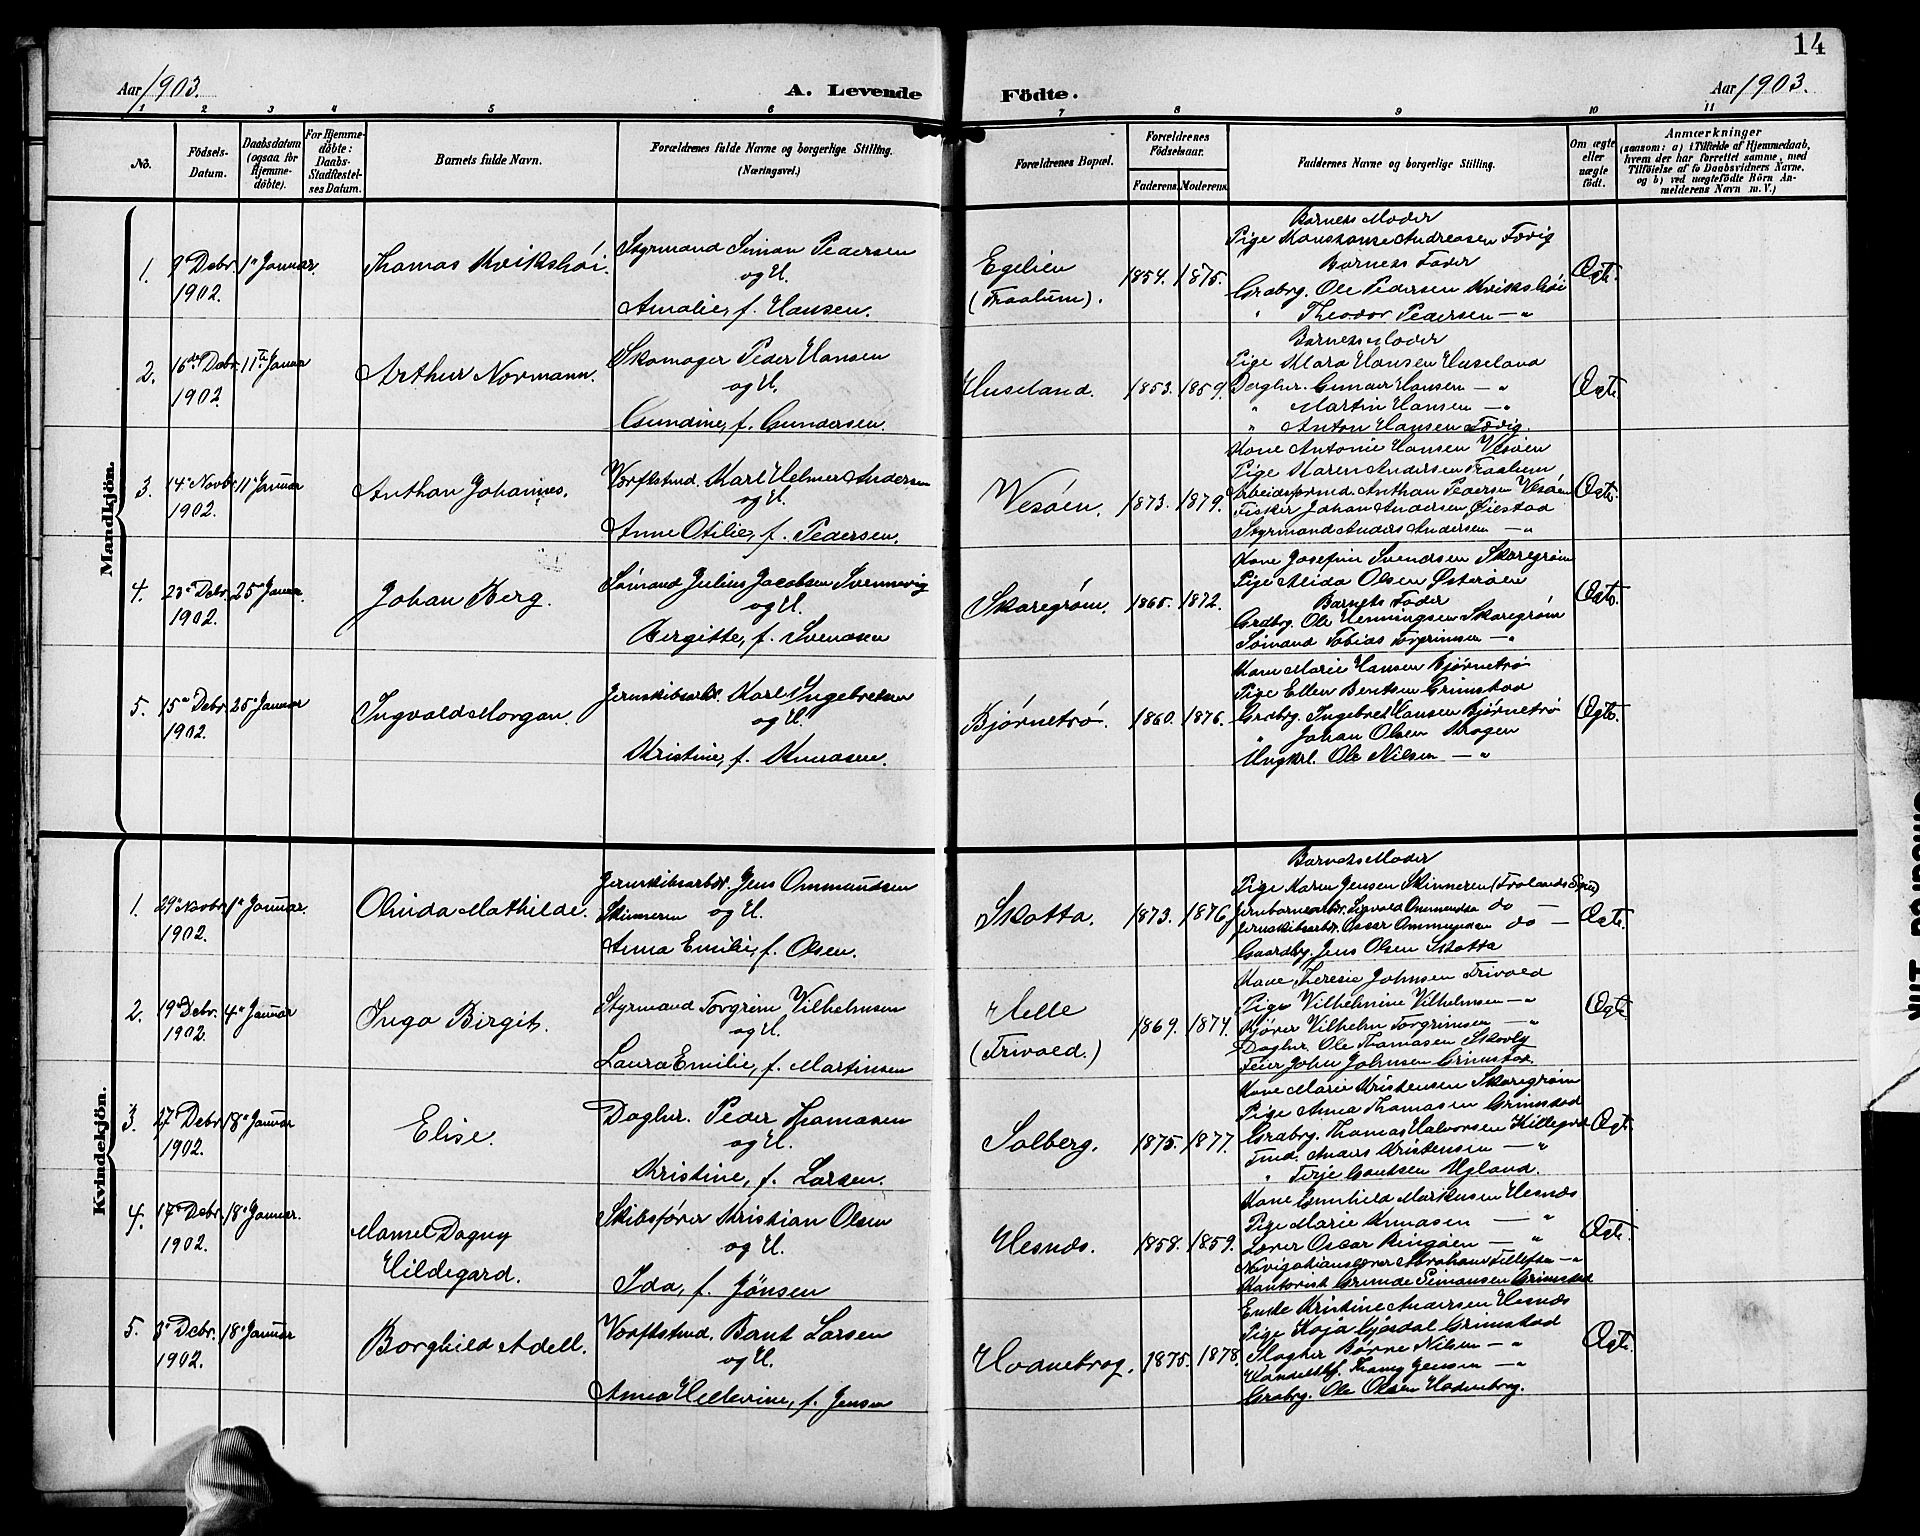 14
Aar 1903.
A. Levende Födte.
Aar 1903.
1 2 3 4 5 6 7 8 9 10 11
No.
Födsels-
Datum.
Daabsdatum
(ogsaa for
Hjemme-
döbte).
For Hjemme-
döbte:
Daabs-
Stadfæstel-
ses Datum.
Barnets fulde Navn.
Forældrenes fulde Navne og borgerlige Stilling.
(Næringsvei.)
Forældrenes Bopæl.
Forældrenes
Födselsaar.
Faderens. Moderens.
Faddernes Navne og borgerlige Stilling.
Om ægte
eller
uægte
födt.
Anmærkninger
(saasom: a) i Tilfælde af Hjemmedaab,
hvem der har forrettet samme, med
Tilföielse af to Daabsvidners Navne,
og b) ved uægtefödte Börn An-
melderens Navn m. V.)
Mandkjön.
1.
9 Debr.
1902.
1' Januar.
Thomas Kvikshöi.
Styrmand Simon Pedersen
og H.
Amalie, f. Hansen.
Egelien
(Fraalum).
1854. 1875.
Barnets Moder
Pige Konstanse Andreasen Fævig
Barnets Fader
Grdbrg. Ole Pedersen Kvikshöi
" Theodor Pedersen — "
Ægte.
2.
16de Debr.
1902.
11te Januar
Arthur Normann.
Skomager Peder Hansen
og H.
Gundine, f. Gundersen.
Huseland.
1853. 1859.
Barnets Moder
Pige Mara Hansen Huseland
Daglnr. Gunder Hansen — "
" Martin Hansen — "
" Anton Hansen Fævig.
Ægte.
3.
14' Novbr.
1902.
11' Januar
Anthon Johannes.
Værftstmd. Karl Helmer Andersen
og H.
Anne Otilie, f. Pedersen.
Vesöen.
1873. 1879.
Kone Antonie Hansen Vesöen
Pige Maren Andersen Fraalum
Arbeidsformd. Anthon Pedersen Vesöen
Fisker Johan Andersen Öiestad
Styrmand Anders Andersen — "
Ægte.
4.
23' Debr.
1902.
25' Januar.
Johan Berg.
Sömand Julius Jacobsen Svennevig
og H.
Bergitte, f. Svendsen
Skaregröm.
1865. 1872.
Kone Josefin Svendsen Skaregröm
Pige Alida Olsen Österöen
Barnets Fader
Grdbrg. Ole Henningsen Skaregröm
Sömand Tobias Torgrimsen — "
Ægte.
5.
15' Debr.
1902.
25' Januar
Ingvald Morgan.
Jernskibsarbr. Karl Ingebretsen
og H.
Kristine, f. Knudsen.
Bjørnetrö.
1860. 1876.
Kone Marie Hansen Bjørnetrö
Pige Ellen Bentsen Grimstad
Grdbrg. Ingebret Hansen Bjørnetrö
" Johan Olsen Krogen
Ungkrl. Ole Nilsen — "
Ægte.
Kvindekjön.
1.
29' Novbr.
1902.
1' Januar.
Olinda Mathilde.
Jernskibsarbr. Jens Ommundsen
Skinneren og H.
Anna Emilie, f. Olsen.
Skotta.
1873. 1876.
Barnets Moder
Pige Karen Jensen Skinneren
Jernbanearbr. Sigvald Ommundsen do —
Jernskibsarbr. Oscar Ommundsen do —
Gaardbg. Jens Olsen Skotta
Ægte.
2.
19' Debr.
1902.
4' Januar
Inga Birgit.
Styrmand Torgrim Vilhelmsen
og H.
Laura Emilie, f. Martinsen
Helle
(Trivold.)
1869. 1874.
Kone Theresie Johnsen Trivold
Pige Vilhelmine Vilhelmsen — "
Kjører Vilhelm Torgrimsen — "
Daglnr. Ole Thomasen Skovly
Feier John Johnsen Grimstad
Ægte
3.
27' Debr.
1902.
18' Januar
Elise.
Daglnr. Peder Thomasen
og H.
Kristine, f. Larsen.
Solberg.
1875. 1877.
Kone Marie Kristensen Skaregröm
Pige Anna Thomasen Grimstad
Grdbrg. Thomas Halvorsen Killegrd
Tmd. Anders Kristensen — "
" Terje Gautsen Ugland.
Ægte.
4.
17' Debr.
1902.
18' Januar.
Mamel Dagny
Hildegard.
Skibsfører Kristian Olsen
og H.
Ida, f. Jönsen
Hesnæs.
1858. 1859.
Kone Gunhild Markusen Hesnæs
Pige Marie Knudsen — "
Lærer Oscar Ringöen — "
Navigationslærer Abraham Tellefsen — "
Kontorist Grunde Simonsen Grimstad
Ægte.
5.
3' Debr.
1902.
18' Januar
Borghild Adell.
Værftstmd. Bernt Larsen
og H.
Anna Hellevine, f. Jensen
Hodnebrog.
1875. 1878.
Enke Kristine Andersen Hesnæs
Pige Kaja Gjærdal Grimstad
Slagter Børre Nilsen — "
Handelsbf. Thomy Jensen — "
Grdbrg. Ole Olsen Hodnebrog.
Ægte.